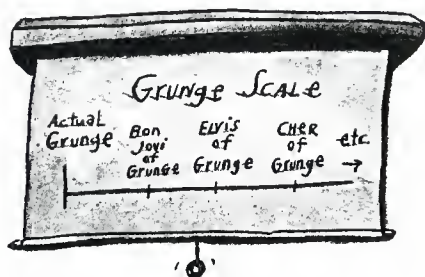 GRUNGE SCALE
Actual
Grunge
Bon
Jovi
of
Grunge
ELVIS
of
Grunge
CHER
of
Grunge
etc.
→